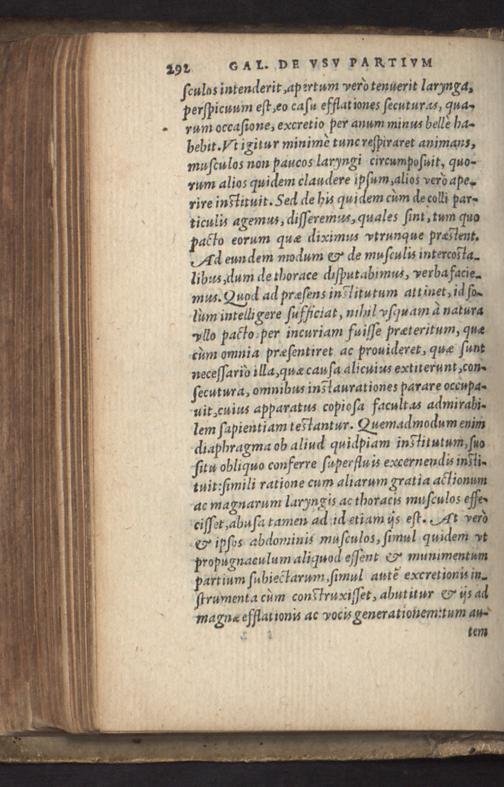 292 GAL. DE VSV PARTIVM
sculos intenderit, apertum verò tenuerit larynga,
perspicuum est, eo casu efflationes secuturas, qua-
rum occasione, excretio per anum minus bellè ha-
bebit. Vt igitur minimè tunc respiraret animans,
musculos non paucos laryngi circumposuit, quo-
rum alios quidem claudere ipsum, alios verò ape-
rire instituit. Sed de his quidem cùm de colli par-
ticulis agemus, disseremus, quales sint, tum quo
pacto eorum quæ diximus vtrunque præstent.
Ad eundem modum & de musculis intercosta-
libus, dum de thorace disputabimus, verba facie-
mus. Quod ad præsens institutum attinet, id so-
lùm intelligere sufficiat, nihil vsquam à natura
vllo pacto per incuriam fuisse præteritum, quæ
cùm omnia præsentiret ac prouideret, quæ sunt
necessariò illa, quæ causa alicuius extiterunt, con-
secutura, omnibus instaurationes parare occupa-
uit, cuius apparatus copiosa facultas admirabi-
lem sapientiam testantur. Quemadmodum enim
diaphragma ob aliud quidpiam institutum, suo
situ obliquo conferre superfluis excernendis insti-
tuit: simili ratione cum aliarum gratia actionum
ac magnarum laryngis ac thoracis musculos effe-
cisset, abusa tamen ad id etiam ijs est. At verò
& ipsos abdominis musculos, simul quidem vt
propugnaculum aliquod essent & munimentum
partium subiectarum, simul autē excretionis in-
strumenta cùm construxisset, abutitur & ijs ad
magnæ efflationis ac vocis generationem: tum au-
tem